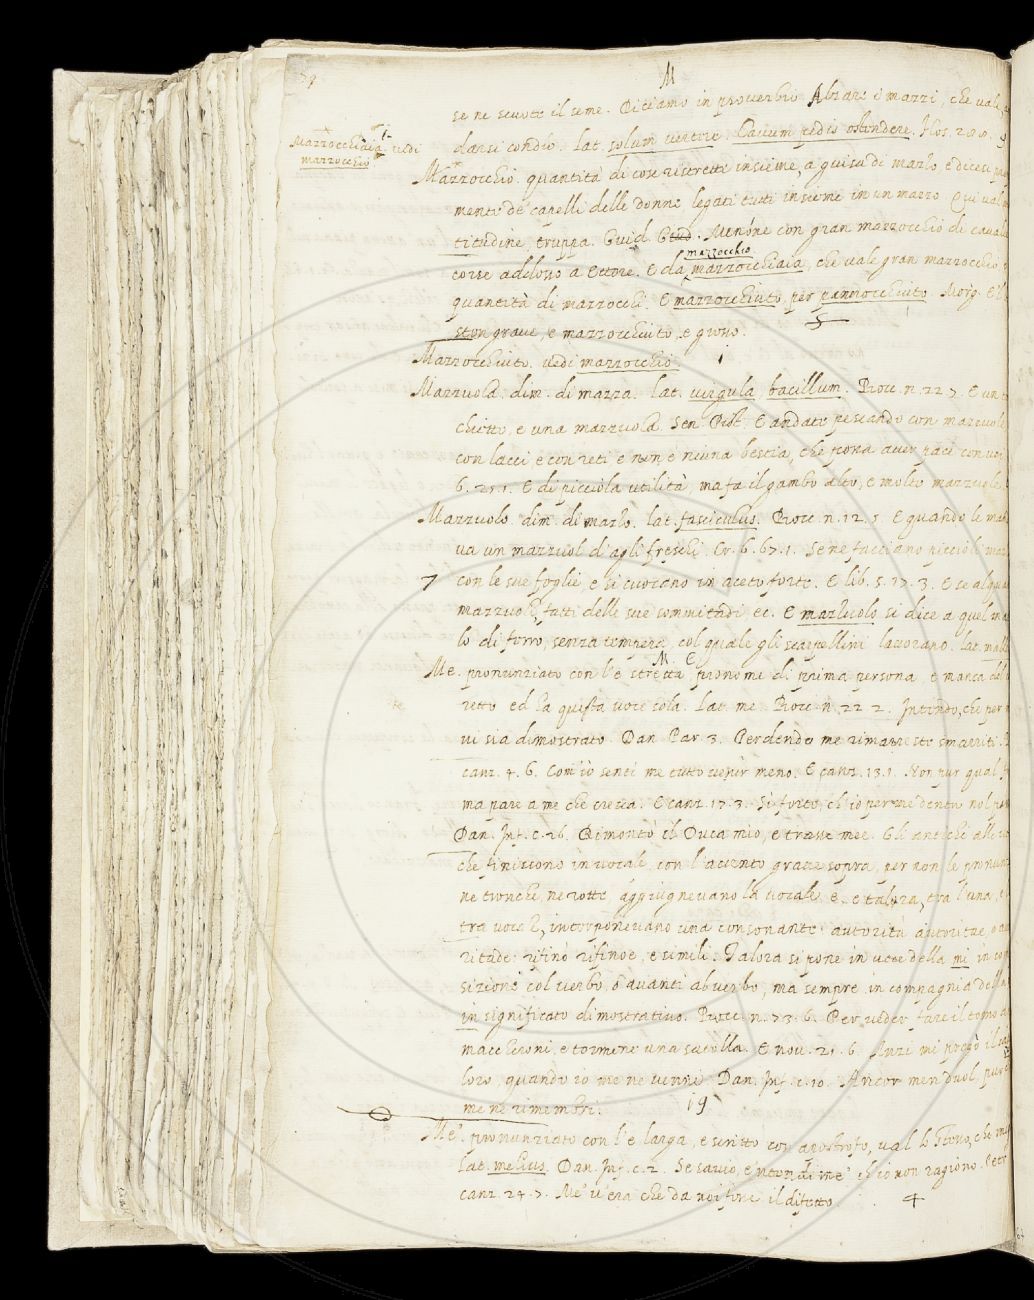 M
se ne scuote il seme. Diciamo in proverbio Alzare i mazzi, che vale,
darsi condio. lat. solum vertere. Flos. 288.
Mazzocchiaia. vedi
mazzocchio
Mazzocchio. quantità di cose ristrette insieme, a guisa di mazzo, e dicesi
mente de' capelli delle donne legati tutti insieme in un mazzo. Qui val
titudine, truppa. Guid. G. Menòne con gran mazzocchio di caval
corse addosso a Ettore. E da mazzocchio mazzocchiaia, che vale gran mazzocchio,
quantità di mazzocchi. E mazzocchiuto, per pannocchiuto. Morg. E'l
ston grave, e mazzocchiuto, e grosso.
Mazzocchiuto. vedi mazzocchio
Mazzuola. dim. di mazza. lat. virgula, bacillum. Bocc. n. 22. 7. E un
chietto, e una mazzuola. Sen. Pist. E andate pescando con mazzuole
con lacci e con reti e non è niuna bestia, che possa aver pace con voi
6. 21. 1. E di picciola utilità, ma fa il gambo alto, e molto mazzuole
Mazzuolo. dim. di mazzo. lat. fasciculus. Bocc. n. 12. 5. E quando le man
va un mazzuol d'agli freschi. Cr. 6. 67. 1. Se ne facciano piccioli maz
7 con le sue foglie, e si cuocano in aceto forte. E lib. 5. 17. 3. E se alqua
mazzuoli fatti delle sue sommitadi, ec. E mazzuolo si dice a quel ma
lo di ferro, senza tempera, col quale gli scarpellini lavorano. lat. malle
M. E
Me. pronunziato con l'e stretta pronome di prima persona, e manca del
retto ed ha questa voce sola. Lat. me. Bocc. n. 22. 2. Intendo, che per
vi sia dimostrato. Dan. Par. 3. Perdendo me rimarreste smarriti.
canz. 4. 6. Com'io senti me tutto venir meno. E canz. 13. 1. Non pur qual
ma pare a me che cresca. E canz. 17. 3. Si forte, ch'io per me dentro nol
Dan. Inf. c. 26. Rimontò il Duca mio, e trasse mee. Gli antichi alle
che finiscono in vocale, con l'accento grave sopra, per non le pronun
ne tronche, ne rotte, aggiugnevano la vocale e, e talora, tra l'una, e
tra voce E, interponevano una consonante: autorità autoritae, o au
ritade: rifinò rifinoe, e simili. Talora si pone in vece della mi in co
sizione col verbo, o avanti al verbo, ma sempre in compagnia della
in significato dimostrativo. Bocc. n. 73. 6. Per veder fare il tomo a
maccheroni, e tormene una satolla. E nov. 21. 6. Anzi mi pregò il
loro, quando io me ne venni. Dan. Inf. c. 10. Ancor men duol, pur
me ne rimembri. 19
Me'. pronunziato con l'e larga, e scritto con apostrofo, val lo stesso, che
lat. melius. Dan. Inf. c. 2. Se' savio, e 'ntendi me' ch'io non ragiono.
canz. 24. 7. Me' v'era che da noi fosse il difetto. 4